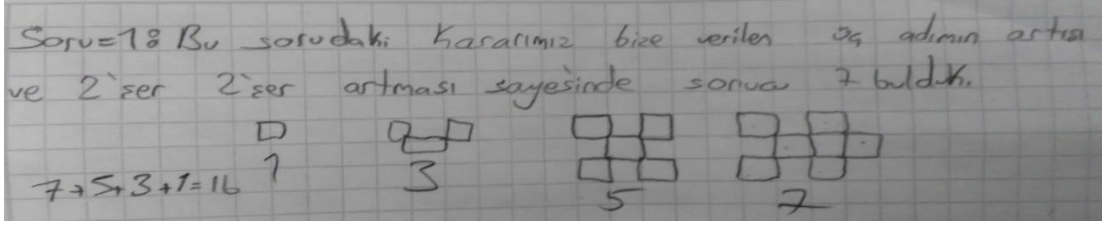 Soru=1: Bu sorudaki kararımız bize verilen üç adımın artışı
ve 2'şer 2'şer artması sayesinde sonucu 7 bulduk.
1 3 5 7
7+5+3+1=16